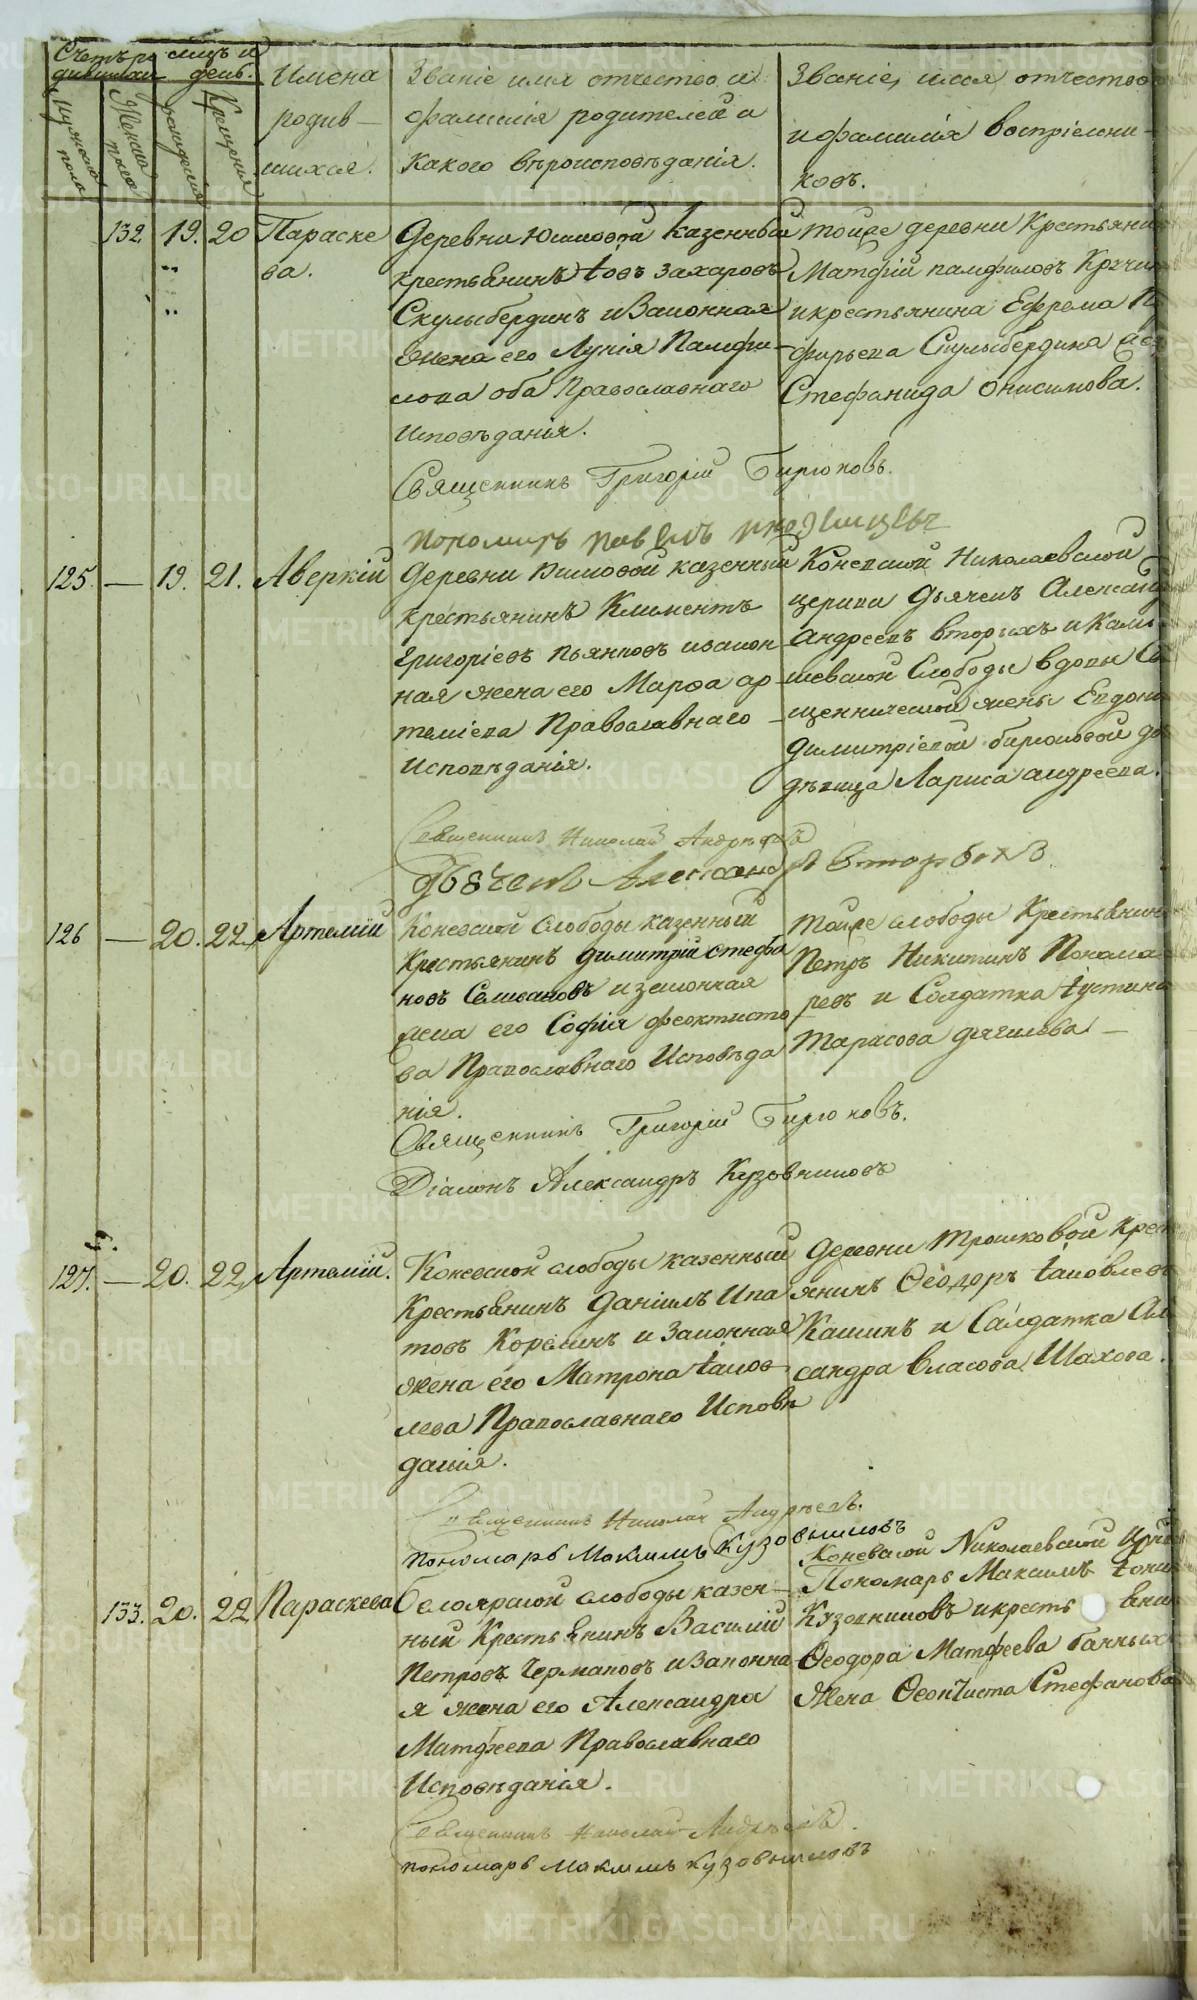 Счетъ ро
дившихся
Мужеска
пола
Женска
пола
мѣсяцъ и
день.
рожденія
Крещенія
Имена
родив-
шихся.
Званіе имя отчество и
фамилія родителей и
какого вѣроисповѣданія.
Званіе, имя, отчество
и фамилія воспріемни-
ковъ.
132 19. 20 Параске
ва.
Деревни казенный
крестьянинъ Іовъ Захаровъ
Скулыбердинъ и Законная
жена его Лукія Памфи-
лова оба Православнаго
Исповѣданія.
Священникъ Григорій Бирюковъ.
Пономарь
тойже деревни Крестьянин
Матфій памфиловъ
и крестьянина Ефрема
фирьева Скулыбердина
Стефанида Онисимова.
125. — 19. 21. Аверкій
Деревни казенный
крестьянинъ Климентъ
Григоріевъ Пьянковъ и закон
ная жена его Марфа ар-
теміева Православнаго
Исповѣданія.
Священникъ Николай Андрѣевъ
Дьячекъ Александръ Вторыхъ
Коневской Николаевской
церкви Дьячекъ Александ
Андреевъ Вторыхъ и Камы
шевской Слободы вдовы Св
щеннической жены Евдоки
Димитріевой бирюковой до
дѣвица Лариса андреева.
126 — 20. 22. Артемій
Коневской Слободы казенный
Крестьянинъ Димитрій Стефа
новъ Селивановъ и законная
жена его Софія феоктисто
ва Православнаго Исповѣда
нія.
Священникъ Григорій Бирюковъ.
Діаконъ Александръ Кузовниковъ
тойже слободы Крестьянин
Петръ Никитинъ Понома
ревъ и Солдатка Іустина
Тарасова дягилева —
127. — 20. 22. Артемій.
Коневской слободы казенный
Крестьянинъ Даніилъ Ипа
товъ Корелинъ и Законная
жена его Матрона Іаков
лева Православнаго Исповѣ
данія.
Священникъ Николай Андрѣевъ.
пономарь Максимъ Кузовниковъ
Деревни Трошковой Крест
янинъ Ѳеодоръ Іаковлевъ
Кашинъ и Салдатка Ал
сандра Власова Шахова.
133. 20. 22 Параскева
Белоярской слободы казен-
ный Крестьянинъ Василій
Петровъ Чермаковъ и Законна
я жена его Александра
Матфеева Православнаго
Исповѣданія.
Священникъ Николай Андрѣевъ.
пономарь Максимъ Кузовниковъ
Коневской Николаевской Церк
Пономарь Максимъ Іоник
Кузовниковъ и кресть яни
Ѳеодора Матфеева Банных
Жена Ѳеоктиста Стефанова